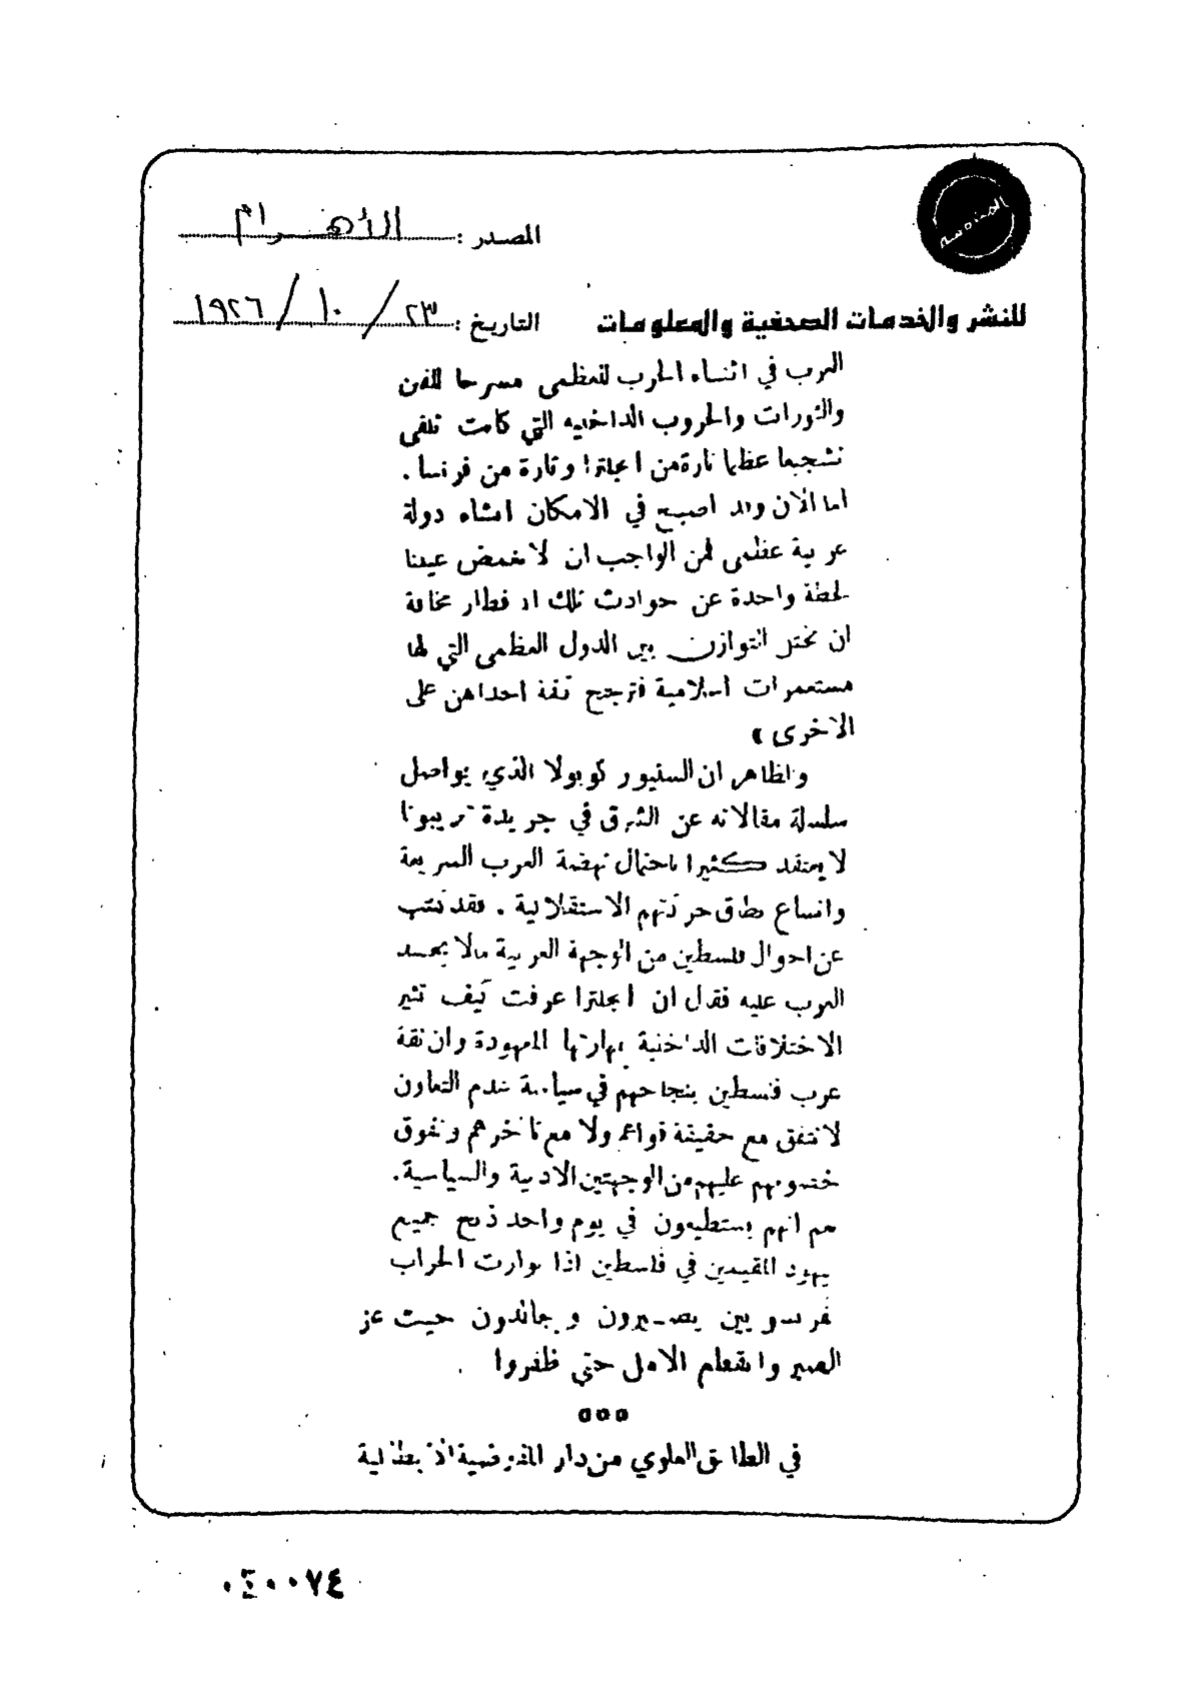 المصدر : الأهرام
للنشر والخدمات الصحفية والمعلومات
التاريخ : ٢٣ / ١٠ / ١٩٢٦
العرب في اثناء الحرب العظمى مسرحا للفتن
والثورات والحروب الداخلية التي كانت تلقى
تشجيعا عظيما تارة من انجلترا وتارة من فرنسا .
اما الآن وقد اصبح في الامكان انشاء دولة
عربية عظمى فمن الواجب ان لا نغمض عيننا
لحظة واحدة عن حوادث تلك الاقطار مخافة
ان يختل التوازن بين الدول العظمى التي لها
مستعمرات اسلامية فترجح كفة احداهن على
الاخرى »
والظاهر ان السنيور كوبولا الذي يواصل
سلسلة مقالاته عن الشرق في جريدة تريبونا
لا يعتقد كثيرا باحتمال نهضة العرب السريعة
واتساع نطاق حركتهم الاستقلالية . فقد كتب
عن احوال فلسطين من الوجهة العربية مالا يحسد
العرب عليه فقال ان انجلترا عرفت كيف تثير
الاختلافات الداخلية بمهارتها المعهودة وان ثقة
عرب فلسطين بنجاحهم في سياسة عدم التعاون
لا تتفق مع حقيقة قواهم ولا مع تأخرهم وتفوق
خصومهم عليهم من الوجهتين الادبية والسياسية .
نعم انهم يستطيعون في يوم واحد ذبح جميع
يهود المقيمين في فلسطين اذا توارت الحراب
حيث عز
الصبر وانقطع الامل حتى ظفروا .
ººº
في الطابق العلوي من دار المفوضية